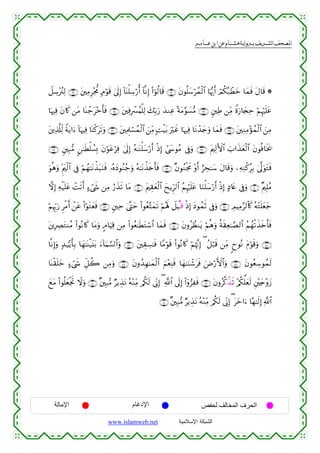 المصحف الشريف برواية هشام عن ابن عامر
* قَالَ فَمَا خَطْبُكُمْ أَيُّهَا الْمُرْسَلُونَ قَالُوا إِنَّا أُرْسِلْنَا إِلَى قَوْمٍ مُجْرِمِينَ لِنُرْسِلَ
عَلَيْهِمْ حِجَارَةً مِنْ طِينٍ مُسَوَّمَةً عِنْدَ رَبِّكَ لِلْمُسْرِفِينَ فَأَخْرَجْنَا مَنْ كَانَ فِيهَا
مِنَ الْمُؤْمِنِينَ فَمَا وَجَدْنَا فِيهَا غَيْرَ بَيْتٍ مِنَ الْمُسْلِمِينَ وَتَرَكْنَا فِيهَا ءَايَةً لِلَّذِينَ
يَخَافُونَ الْعَذَابَ الْأَلِيمَ وَفِي مُوسَى إِذْ أَرْسَلْنَاهُ إِلَى فِرْعَوْنَ بِسُلْطَانٍ مُبِينٍ
فَتَوَلَّى بِرُكْنِهِ وَقَالَ سَاحِرٌ أَوْ مَجْنُونٌ فَأَخَذْنَاهُ وَجُنُودَهُ فَنَبَذْنَاهُمْ فِي الْيَمِّ وَهُوَ
مُلِيمٌ وَفِي عَادٍ إِذْ أَرْسَلْنَا عَلَيْهِمُ الرِّيحَ الْعَقِيمَ مَا تَذَرُ مِنْ شَيْءٍ أَتَتْ عَلَيْهِ إِلَّا
جَعَلَتْهُ كَالرَّمِيمِ وَفِي ثَمُودَ إِذْ قِيلَ لَهُمْ تَمَتَّعُوا حَتَّى حِينٍ فَعَتَوْا عَنْ أَمْرِ رَبِّهِمْ
فَأَخَذَتْهُمُ الصَّاعِقَةُ وَهُمْ يَنْظُرُونَ فَمَا اسْتَطَاعُوا مِنْ قِيَامٍ وَمَا كَانُوا مُنْتَصِرِينَ
وَقَوْمَ نُوحٍ مِنْ قَبْلُ إِنَّهُمْ كَانُوا قَوْمًا فَاسِقِينَ وَالسَّمَاءَ بَنَيْنَاهَا بِأَيْيْدٍ وَإِنَّا
لَمُوسِعُونَ وَالْأَرْضَ فَرَشْنَاهَا فَنِعْمَ الْمَاهِدُونَ وَمِنْ كُلِّ شَيْءٍ خَلَقْنَا
زَوْجَيْنِ لَعَلَّكُمْ تَذَّكَّرُونَ فَفِرُّوا إِلَى اللَّهِ إِنِّي لَكُمْ مِنْهُ نَذِيرٌ مُبِينٌ وَلَا تَجْعَلُوا مَعَ
اللَّهِ إِلَهًا ءَاخَرَ إِنِّي لَكُمْ مِنْهُ نَذِيرٌ مُبِينٌ
الحرف المخالف لحفص الإدغام الإمالة
الشبكة الإسلامية www.islamweb.net